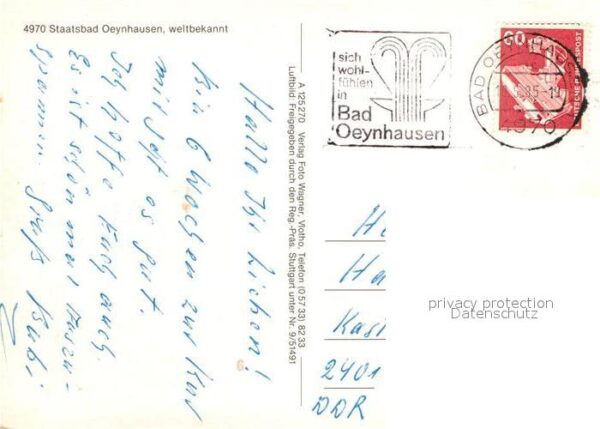 4970 Staatsbad Oeynhausen, weltbekannt
Hallo Ihr Lieben!
Bin 6 Wochen zur Kur
mir geht es gut.
Ich hoffe Euch auch.
Es ist schön mal Auszu-
spannen. Gruß
A 125 270 Verlag Foto Wagner, Vlotho, Telefon (0 57 33) 82 33
Luftbild: Freigegeben durch den Reg.-Präs. Stuttgart unter Nr. 9/51491
sich
wohl-
fühlen
in
Bad
Oeynhausen
60
BAD OEYNHAUSEN
85-19
4970
He
Ha
Kasi
2401
DDR
privacy protection
Datenschutz
6